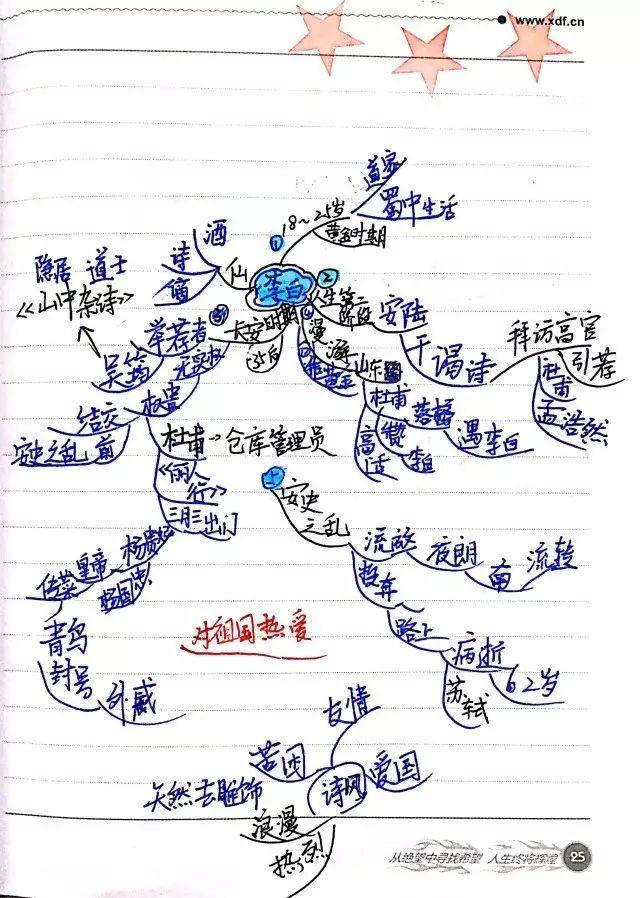 www.xdf.cn
道家
蜀中生活
① 18～25岁
黄金时期
酒
诗
仙
李白
隐居 道士
《山中杂诗》
吴筠
举荐者
无实权
③ 长安时期
35后
权贵
结交
安史之乱 前
杜甫→仓库管理员
《丽人行》
三月三出门
杨贵妃
杨国忠
皇帝
传菜
青鸟
封号
外戚
② 人生第二阶段
安陆
干谒诗
拜访高官
引荐
杜甫
孟浩然
④ 漫游
山东
杜甫
高适
李白
落魄
遇李白
安史之乱
流放
夜朗
南
流转
投奔
路上
病逝
62岁
苏轼
对祖国热爱
友情
苦闷
诗风
爱国
天然去雕饰
浪漫
热烈
从绝望中寻找希望 人生终将辉煌
25